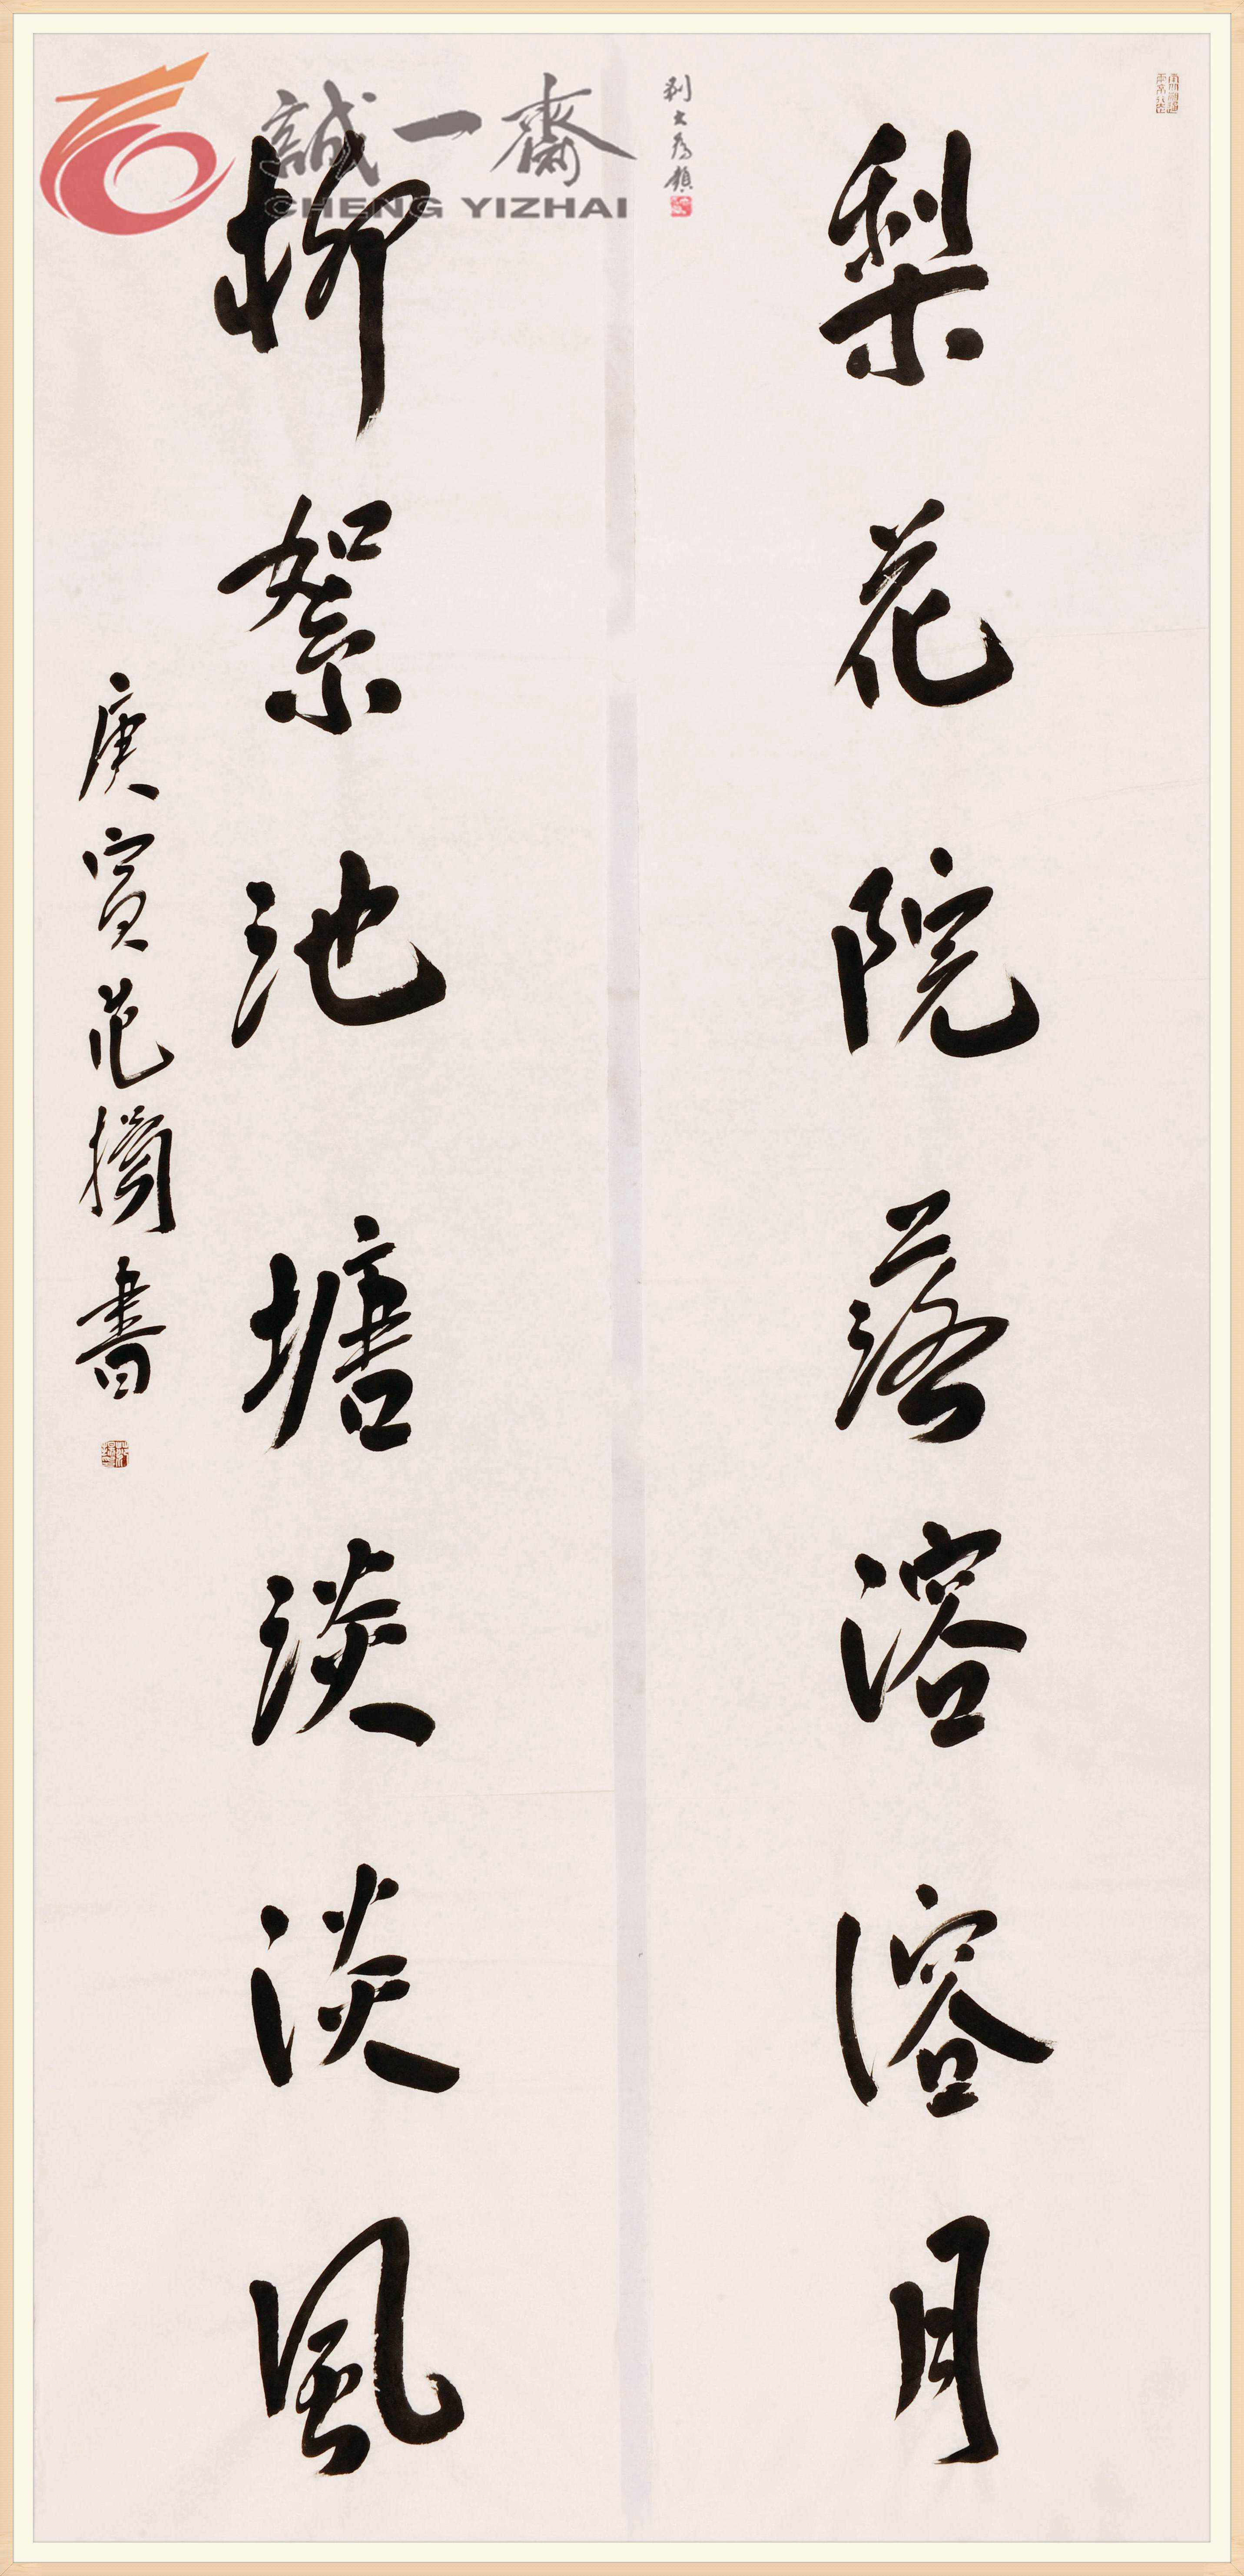 梨花院落溶溶月
柳絮池塘淡淡風
庚寅范揚書
誠一齋
CHENG YIZHAI